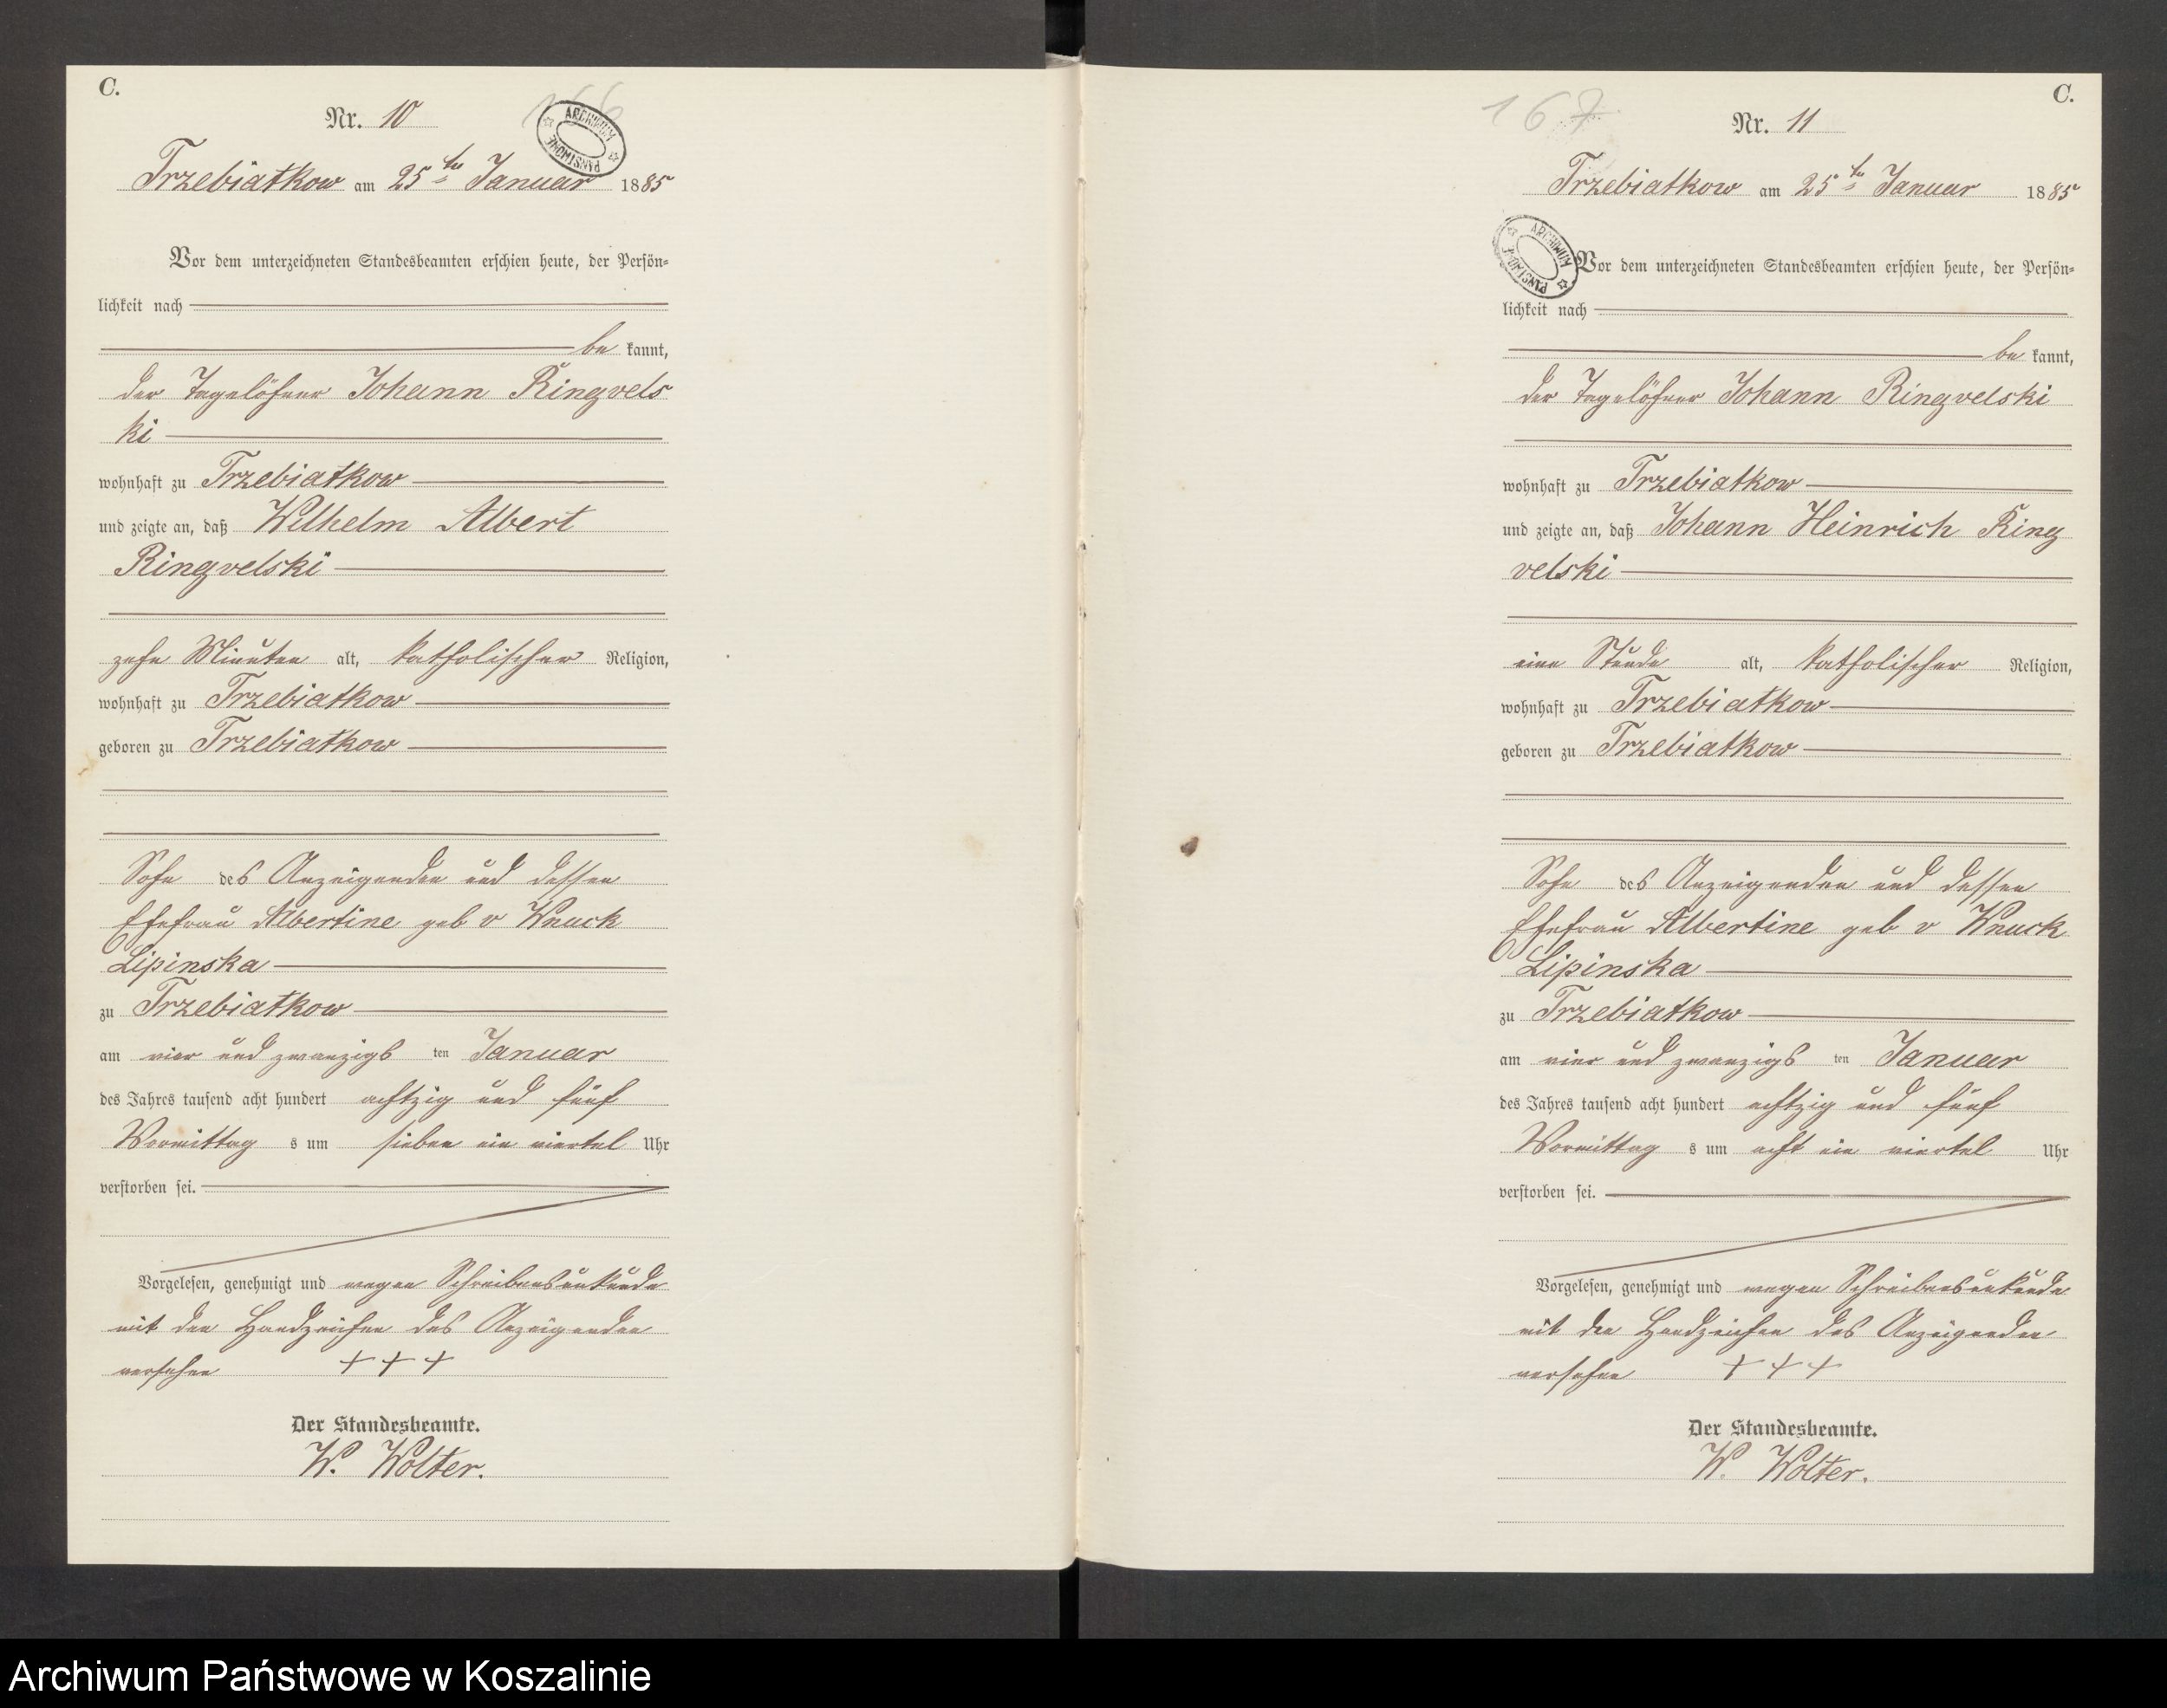 C.
Nr. 10
166
ARCHIWUM PAŃSTWOWE
Trzebiatkow am 25ten Januar 1885
Vor dem unterzeichneten Standesbeamten erschien heute, der Persön=
lichkeit nach
be kannt,
der Tagelöhner Johann Ringvels
ki
wohnhaft zu Trzebiatkow
und zeigte an, daß Wilhelm Albert
Ringvelski
zehn Minuten alt, katholischer Religion,
wohnhaft zu Trzebiatkow
geboren zu Trzebiatkow
Sohn des Anzeigenden und dessen
Ehefrau Albertine geb v Wnuck
Lipinska
zu Trzebiatkow
am vier und zwanzigs ten Januar
des Jahres tausend acht hundert achtzig und fünf
Vormittag s um sieben ein viertel Uhr
verstorben sei.
Vorgelesen, genehmigt und wegen Schreibensunkunde
mit den Handzeichen des Anzeigenden
versehen + + +
Der Standesbeamte.
W. Wolter.
C.
167
Nr. 11
Trzebiatkow am 25ten Januar 1885
ARCHIWUM PAŃSTWOWE
Vor dem unterzeichneten Standesbeamten erschien heute, der Persön=
lichkeit nach
be kannt,
der Tagelöhner Johann Ringvelski
wohnhaft zu Trzebiatkow
und zeigte an, daß Johann Heinrich Ring
velski
eine Stunde alt, katholischer Religion,
wohnhaft zu Trzebiatkow
geboren zu Trzebiatkow
Sohn des Anzeigenden und dessen
Ehefrau Albertine geb v Wnuck
Lipinska
zu Trzebiatkow
am vier und zwanzigs ten Januar
des Jahres tausend acht hundert achtzig und fünf
Vormittag s um acht ein viertel Uhr
verstorben sei.
Vorgelesen, genehmigt und wegen Schreibensunkunde
mit den Handzeichen des Anzeigenden
versehen + + +
Der Standesbeamte.
W. Wolter.
Archiwum Państwowe w Koszalinie